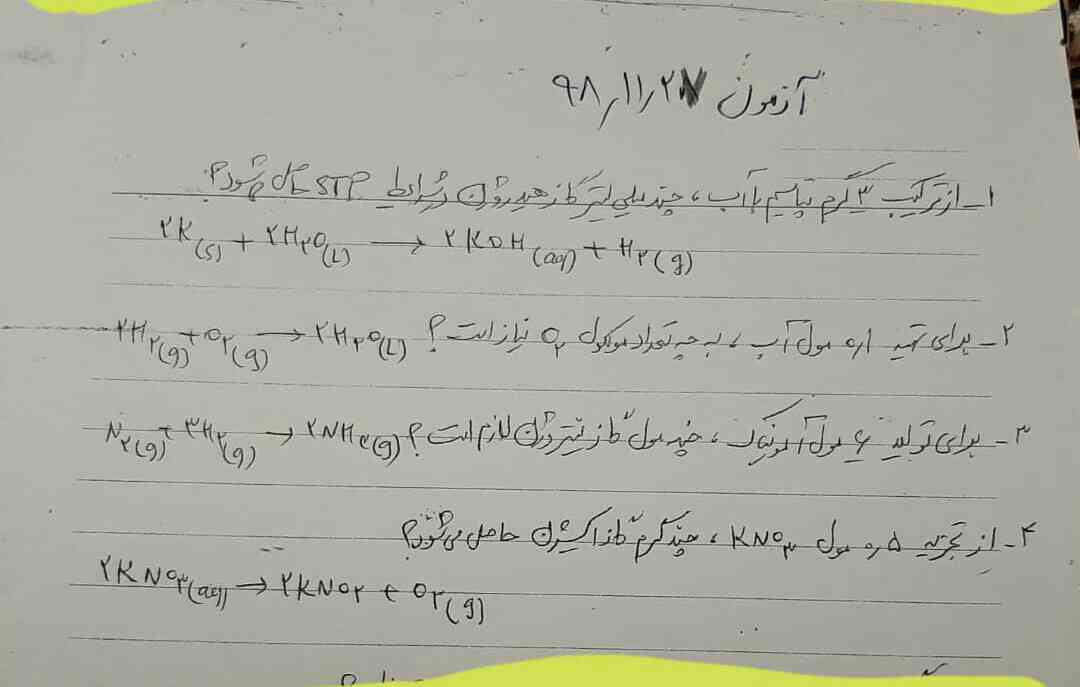 آزمون ۹۸٫۱۱٫۲۷
۱ــ از ترکیب ۳ گرم پتاسیم با آب، چند میلی لیتر گاز هیدروژن در شرایط STP حاصل می شود؟
۲K(s) + ۲H۲O(L) → ۲KOH(aq) + H۲(g)
۲ــ برای تهیه ۰٫۱ مول آب، به چه تعداد مولکول O۲ نیاز است؟ ۲H۲(g) + O۲(g) → ۲H۲O(L)
۳ــ برای تولید ۶ مول آمونیاک، چند مول گاز نیتروژن لازم است؟ N۲(g) + ۳H۲(g) → ۲NH۳(g)
۴ــ از تجزیه ۰٫۵ مول KNO۳، چند گرم گاز اکسیژن حاصل می شود؟
۲KNO۳(aq) → ۲KNO۲ + O۲(g)